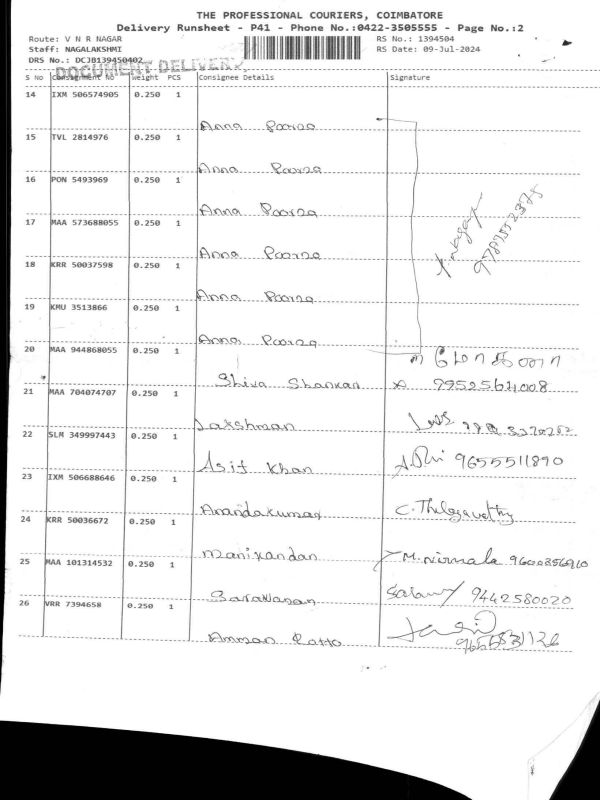 THE PROFESSIONAL COURIERS, COIMBATORE
Delivery Runsheet - P41 - Phone No.:0422-3505555 - Page No.:2
Route: V N R NAGAR RS No.: 1394504
Staff: NAGALAKSHMI RS Date: 09-Jul-2024
DRS No.: DCJB139450402
DOCUMENT DELIVERY
S No Consignment No Weight PCS Consignee Details Signature
14 IXM 506574905 0.250 1
Anna Poorza
15 TVL 2814976 0.250 1
Anna Poorza
16 PON 5493969 0.250 1
Anna Poorza
17 MAA 573688055 0.250 1
Anna Poorza
18 KRR 50037598 0.250 1
Anna Poorza
19 KMU 3513866 0.250 1
Anna Poorza
20 MAA 944868055 0.250 1
Shiva Shankar
21 MAA 704074707 0.250 1
Lakshman
22 SLM 349997443 0.250 1
Asif Khan 9655511890
23 IXM 506688646 0.250 1
Anandakumar
24 KRR 50036672 0.250 1
Manikandan M. Nirmala
25 MAA 101314532 0.250 1
Saravanan 9442580020
26 VRR 7394658 0.250 1
Amman